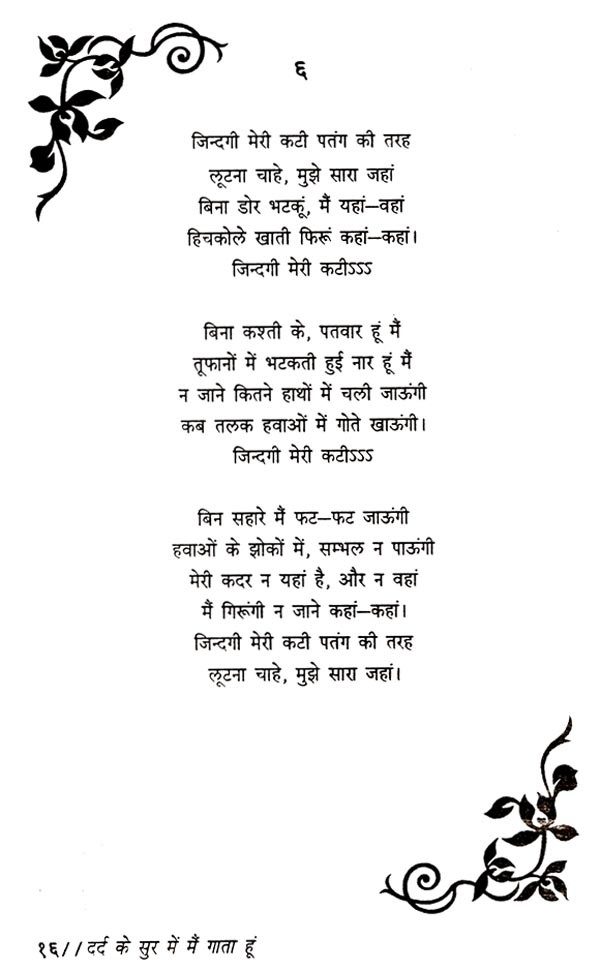 ६
जिन्दगी मेरी कटी पतंग की तरह
लूटना चाहे, मुझे सारा जहां
बिना डोर भटकूं, मैं यहां–वहां
हिचकोले खाती फिरूं कहां–कहां।
जिन्दगी मेरी कटीऽऽऽ
बिना कश्ती के, पतवार हूं मैं
तूफानों में भटकती हुई नार हूं मैं
न जाने कितने हाथों में चली जाऊंगी
कब तलक हवाओं में गोते खाऊंगी।
जिन्दगी मेरी कटीऽऽऽ
बिन सहारे मैं फट–फट जाऊंगी
हवाओं के झोकों में, सम्भल न पाऊंगी
मेरी कदर न यहां है, और न वहां
मैं गिरूंगी न जाने कहां–कहां।
जिन्दगी मेरी कटी पतंग की तरह
लूटना चाहे, मुझे सारा जहां।
१६//दर्द के सुर में मैं गाता हूं